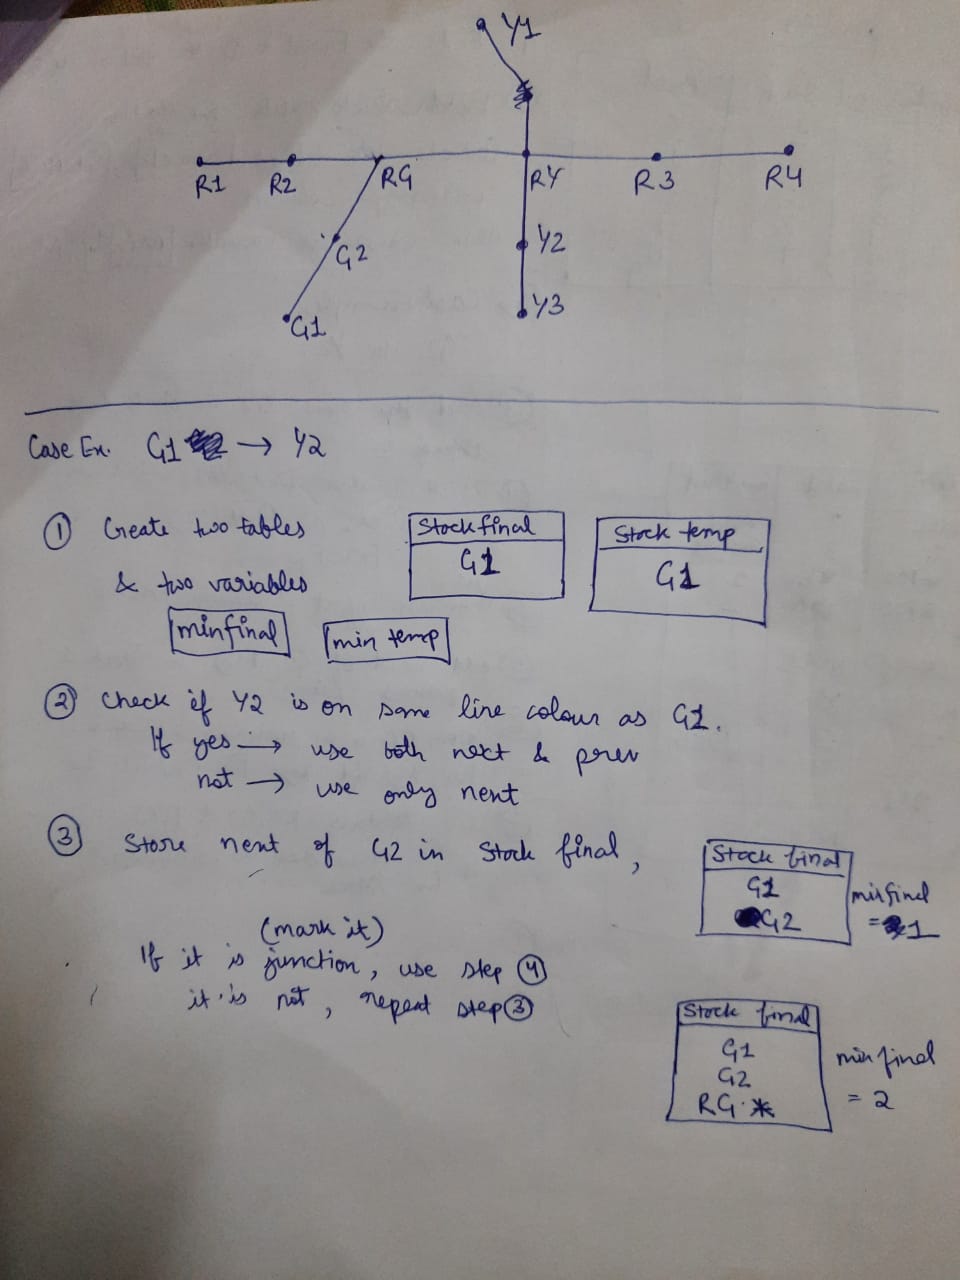 Y1
R1 R2 RG RY R3 R4
G2
Y2
G1
Y3
Case Ex. G1 → Y2
① Create two tables
& two variables
Stock final
G1
Stock temp
G1
minfinal
min temp
② Check if Y2 is on same line colour as G1.
If yes → use both next & prev
not → use only nent
③ Store nent of G2 in Stock final,
Stock final
G1
G2
minfinel
= 1
(mark it)
If it is junction, use step ④
it is not, repeat step ③
Stock final
G1
G2
RG *
min final
= 2